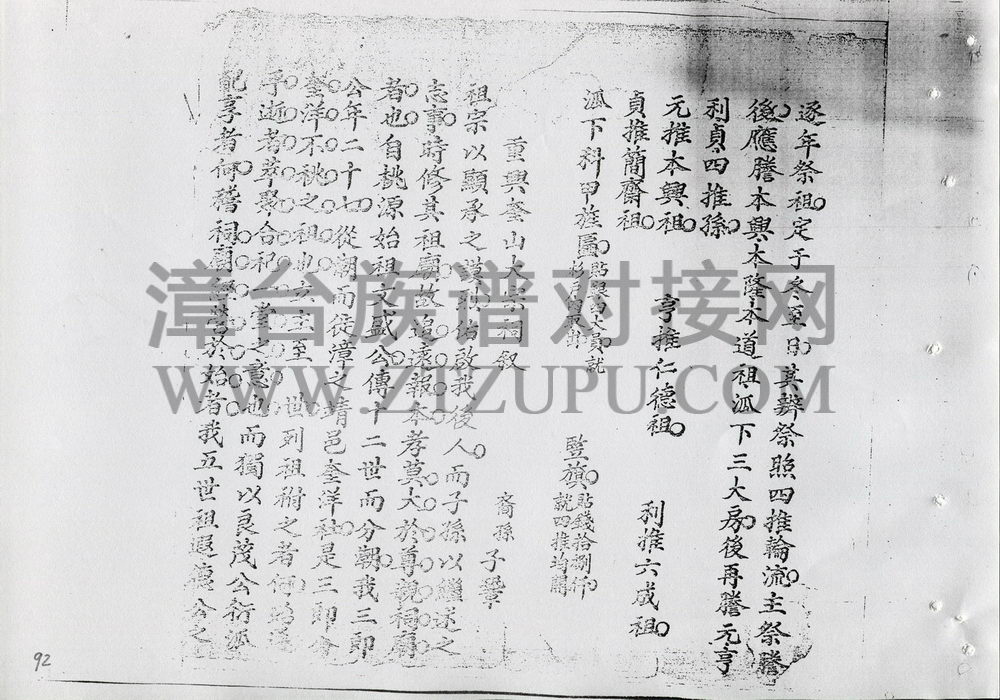 逐年祭祖定于冬至日其辦祭照四推輪流主祭謄
後應謄本興本隆本道祖派下三大房後再謄元亨
利貞四推孫
元推本興祖 亨推仁德祖 利推六成祖
貞推簡齋祖
派下科甲旌匾 就 豎旗貼錢拾捌仟就四推均開
重興奎山大宗祠叙 裔孫子鞏
祖宗以顯承之謨烈佑啟我後人而子孫以繼述之
志事時修其祖廟故追遠報本孝莫大於尊親祠廟
者也自桃源始祖文盛公傳十二世而分朝我三郎
公年二十七從潮而徙漳之靖邑奎洋社是三郎公
奎洋不祧之祖也六主至 世列祖祔之者何為遙
乎逝者萃聚合祀一堂之意也而獨以良茂公衍派
配享者何稽祠廟 營於始者我五世祖遐德公之
漳台族谱对接网
WWW.ZTZUPU.COM
92